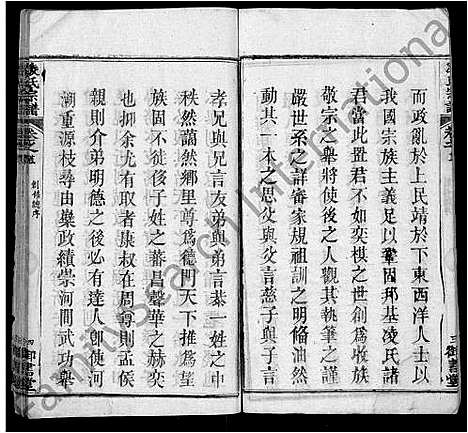 而政亂於上民靖於下東西洋人士以
我國宗族主義足以鞏固邦基凌氏諸
君當此舉君不如奕棋之世創為收族
敬宗之舉將使後之人觀其執筆之
嚴世系之詳審家規祖訓之明備油然
動其一本之思父與父言慈子與子言
孝兄與兄言友弟與弟言恭一姓之大
秩然藹然鄉里尊為德門天下推為望
族固不徒後子姓之蕃昌聲華之赫奕
為尤有取者康叔在周尊則孟侯
親則介弟明德之後必有達人即使河
湖重源枝尋由櫱政績崇河間武功舉
氏宗譜
創修譜序
御書堂
FamilySearch International